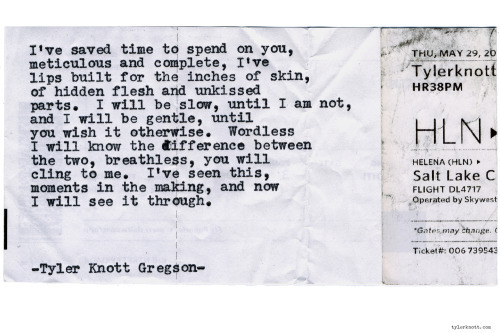 I've saved time to spend on you,
meticulous and complete, I've
lips built for the inches of skin,
of hidden flesh and unkissed
parts. I will be slow, until I am not,
and I will be gentle, until
you wish it otherwise. Wordless
I will know the difference between
the two, breathless, you will
cling to me. I've seen this,
moments in the making, and now
I will see it through.
-Tyler Knott Gregson-
THU, MAY 29, 20
Tylerknott
HR38PM
HLN
HELENA (HLN)
Salt Lake C
FLIGHT DL4717
Operated by Skywest
*Gates may change. C
Ticket#: 006739543
tylerknott.com